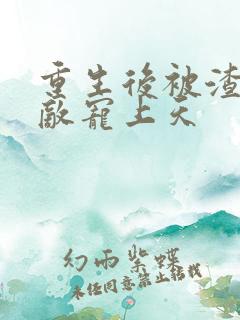 重生後被渣
敵寵上天
幻雨紫蝶
未經同意禁止轉載